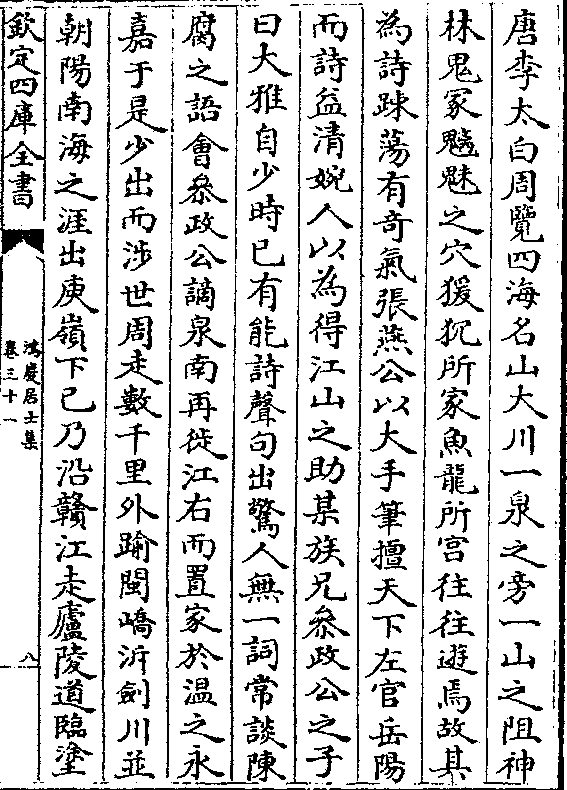 唐李太白周覽四海名山大川一泉之旁一山之阻神
林鬼冢魑魅之穴猨狖所家魚龍所宫往往遊焉故其
為詩踈蕩有奇氣張燕公以大手筆擅天下左官岳陽
而詩益清婉人以為得江山之助某族兄叅政公之子
曰大雅自少時已有能詩聲句出驚人無一詞常談陳
腐之語會叅政公謫泉南再徙江右而置家於温之永
嘉于是少出而涉世周走數千里外踰閩嶠泝劍川並
朝陽南海之涯出庾嶺下已乃沿贛江走廬陵道臨塗
欽定四庫全書
鴻慶居士集
卷三十一
八